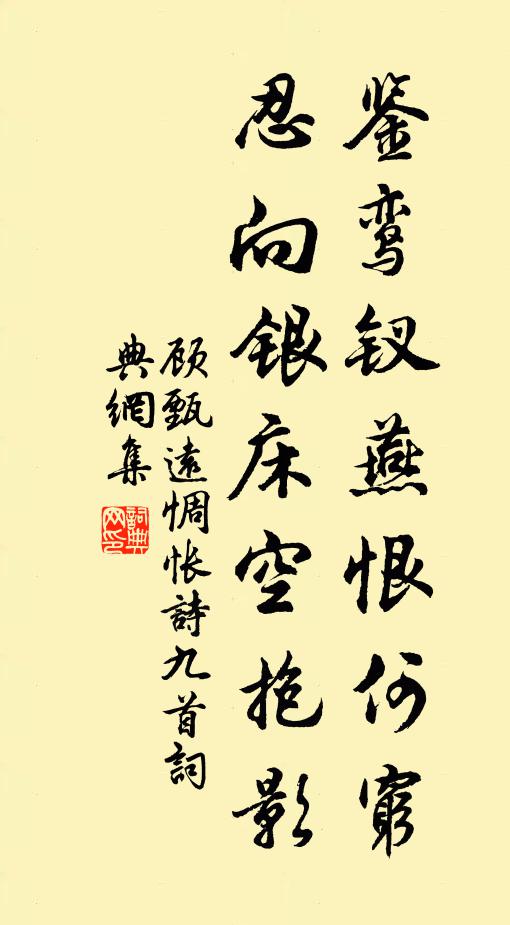 鉴鸾钗燕恨何穷
忍向银床空抱影
顾甄遠惆怅詩九首詞
典網集
詞典网印